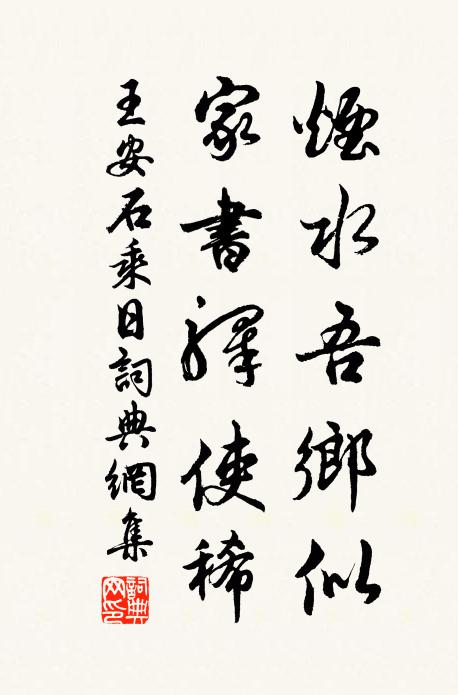 煙水吾鄉似
家書驛使稀
王安石乘日詞典網集
詞典
网印